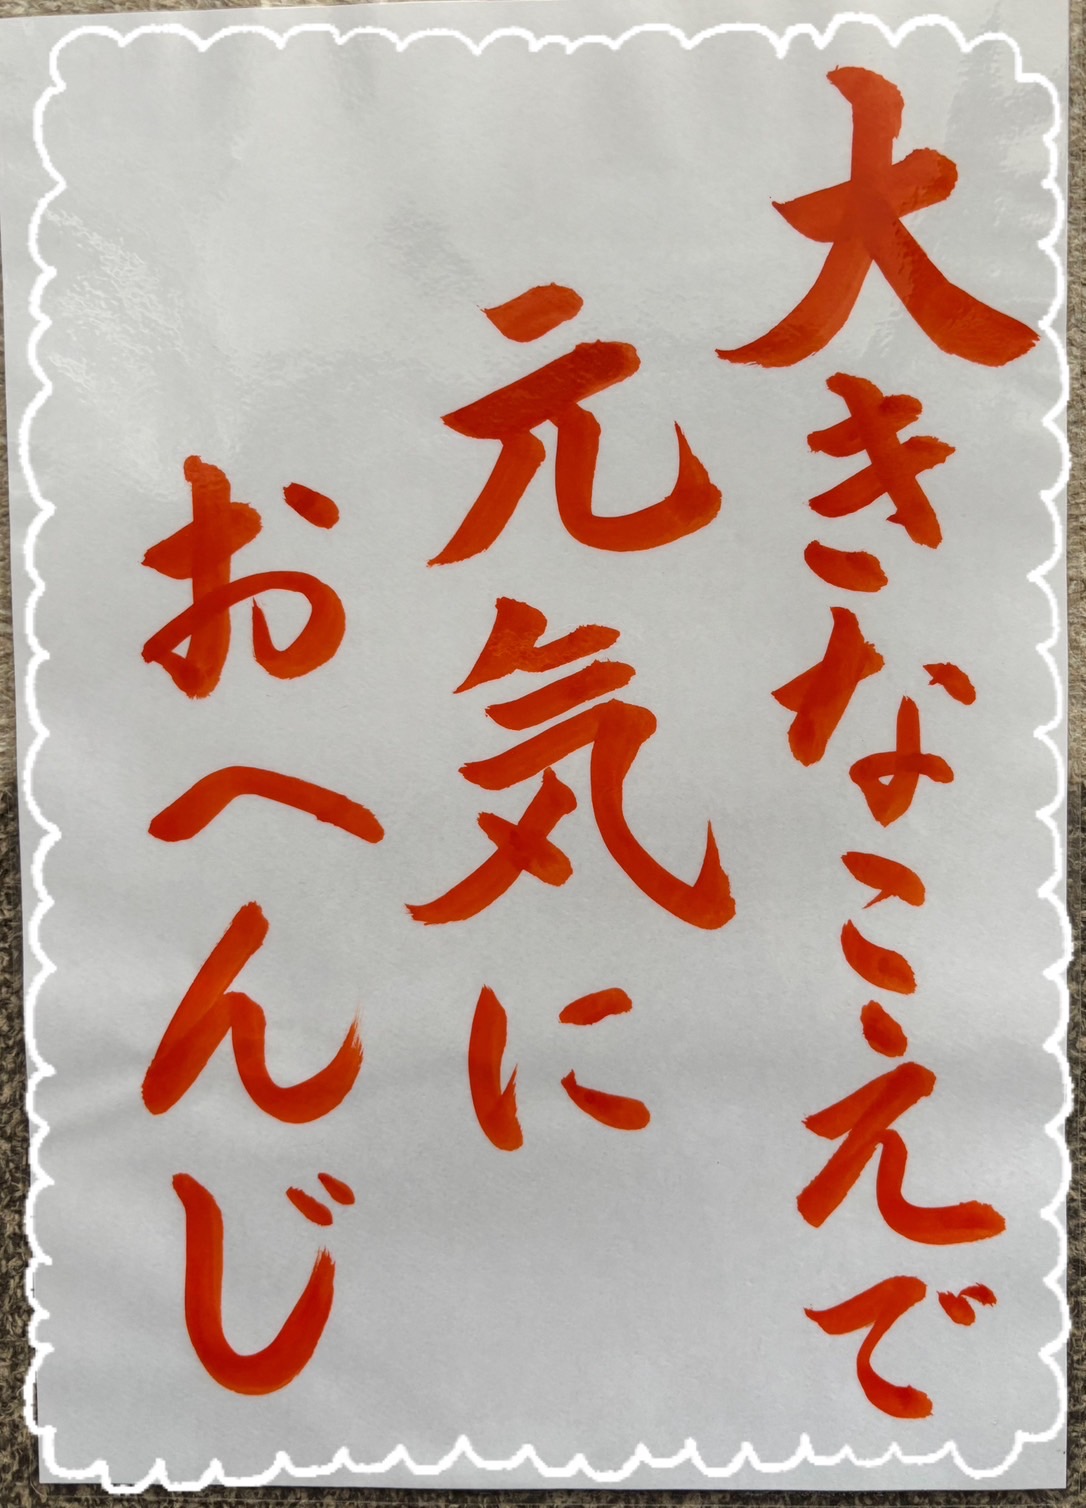 大きなこえで
元気に
おへんじ